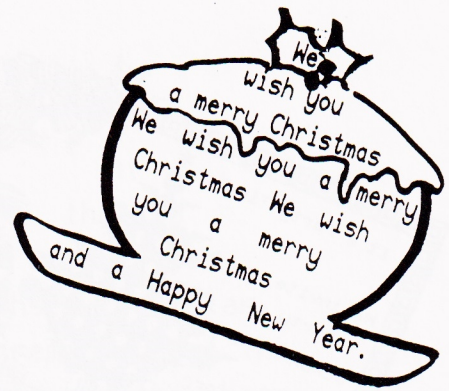 We
wish you
a merry Christmas
We wish you a merry
Christmas We wish
you a merry
Christmas
and a Happy New Year.